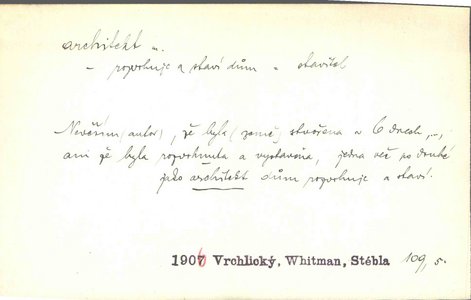 architekt m.
– rozvrhuje a staví dům – stavitel
Nevěřím (autor), že byla (země) stvořena v 6 dnech „,
ani že byla rozvrhnuta a vystavěna, jedna věc po druhé
jako architekt dům rozvrhuje a staví.
1906 Vrchlický, Whitman, Stébla 109, 5.